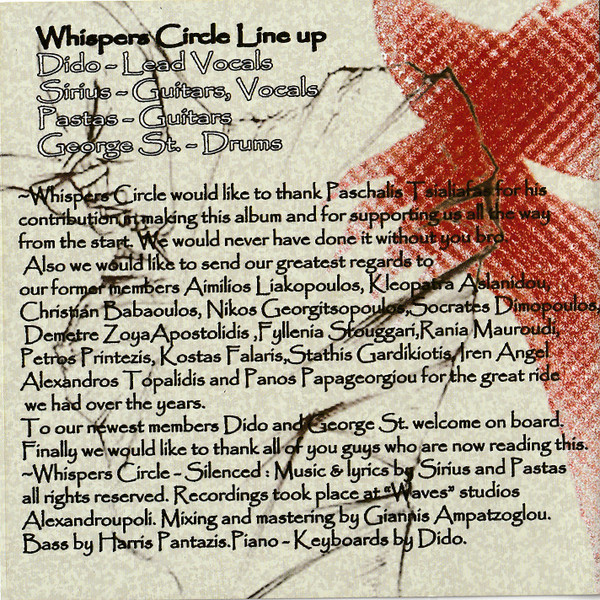 Whispers Circle Line up
Dido - Lead Vocals
Sirius - Guitars, Vocals
Pastas - Guitars
George St. - Drums
~Whispers Circle would like to thank Paschalis Tsialiafas for his
contribution in making this album and for supporting us all the way
from the start. We would never have done it without you bro.
Also we would like to send our greatest regards to
our former members Aimilios Liakopoulos, Kleopatra Aslanidou,
Christian Babaoulos, Nikos Georgitsopoulos,Socrates Dimopoulos,
Demetre ZoyaApostolidis ,Fyllenia Sfouggari,Rania Mauroudi,
Petros Printezis, Kostas Falaris,Stathis Gardikiotis, Iren Angel
Alexandros Topalidis and Panos Papageorgiou for the great ride
we had over the years.
To our newest members Dido and George St. welcome on board.
Finally we would like to thank all of you guys who are now reading this.
~Whispers Circle - Silenced : Music & lyrics by Sirius and Pastas
all rights reserved. Recordings took place at "Waves" studios
Alexandroupoli. Mixing and mastering by Giannis Ampatzoglou.
Bass by Harris Pantazis.Piano - Keyboards by Dido.